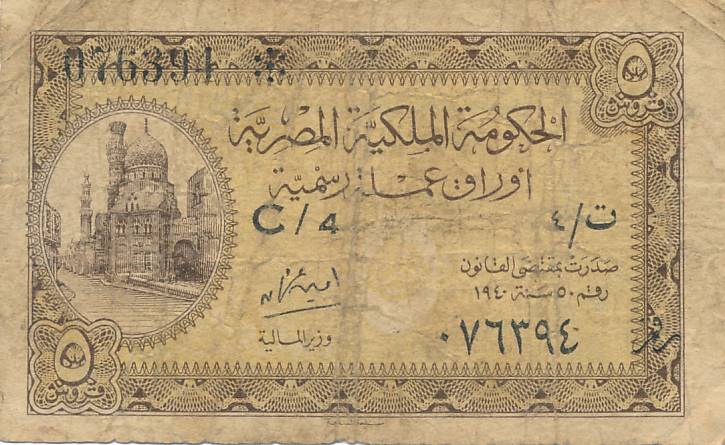 076394 *
٥
قروش
الحكومة الملكية المصرية
أوراق عملة رسمية
C/4
ت/٤
صدرت بمقتضى القانون
رقم ٥٠ سنة ١٩٤٠
وزير المالية
رقم ٠٧٦٣٩٤
٥
قروش